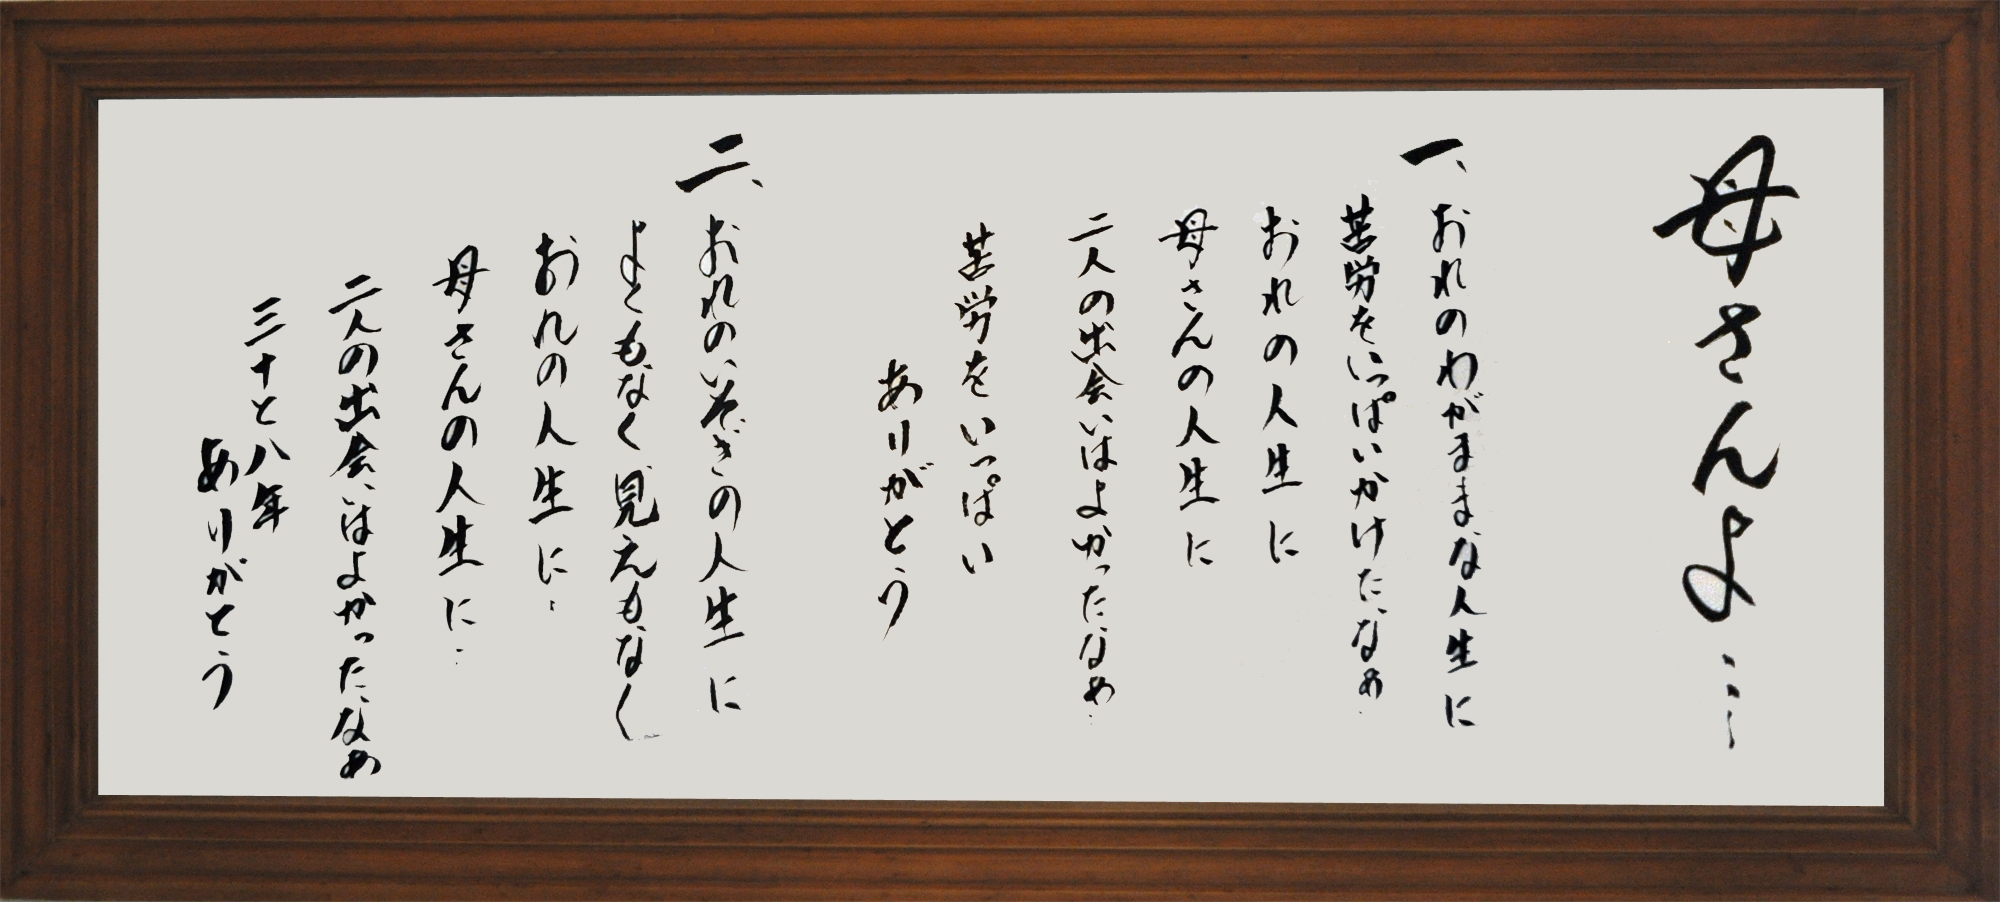 母さんよ…
一、おれのわがままな人生に
苦労をいっぱいかけたなぁ…
おれの人生に
母さんの人生に
二人の出会いはよかったなぁ…
苦労をいっぱい
ありがとう
二、おれのいそぎの人生に
よくもなく見えもなく
おれの人生に…
母さんの人生に…
二人の出会いはよかったなぁ
三十と八年
ありがとう